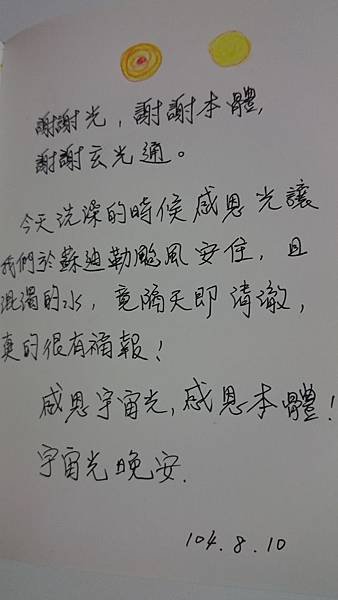 謝謝光，謝謝本體，
謝謝玄光通。
今天洗澡的時候感恩光讓
我們於蘇迪勒颱風安住，且
混濁的水，竟隔天即清澈，
真的很有福報！
感恩宇宙光，感恩本體！
宇宙光晚安.
104.8.10